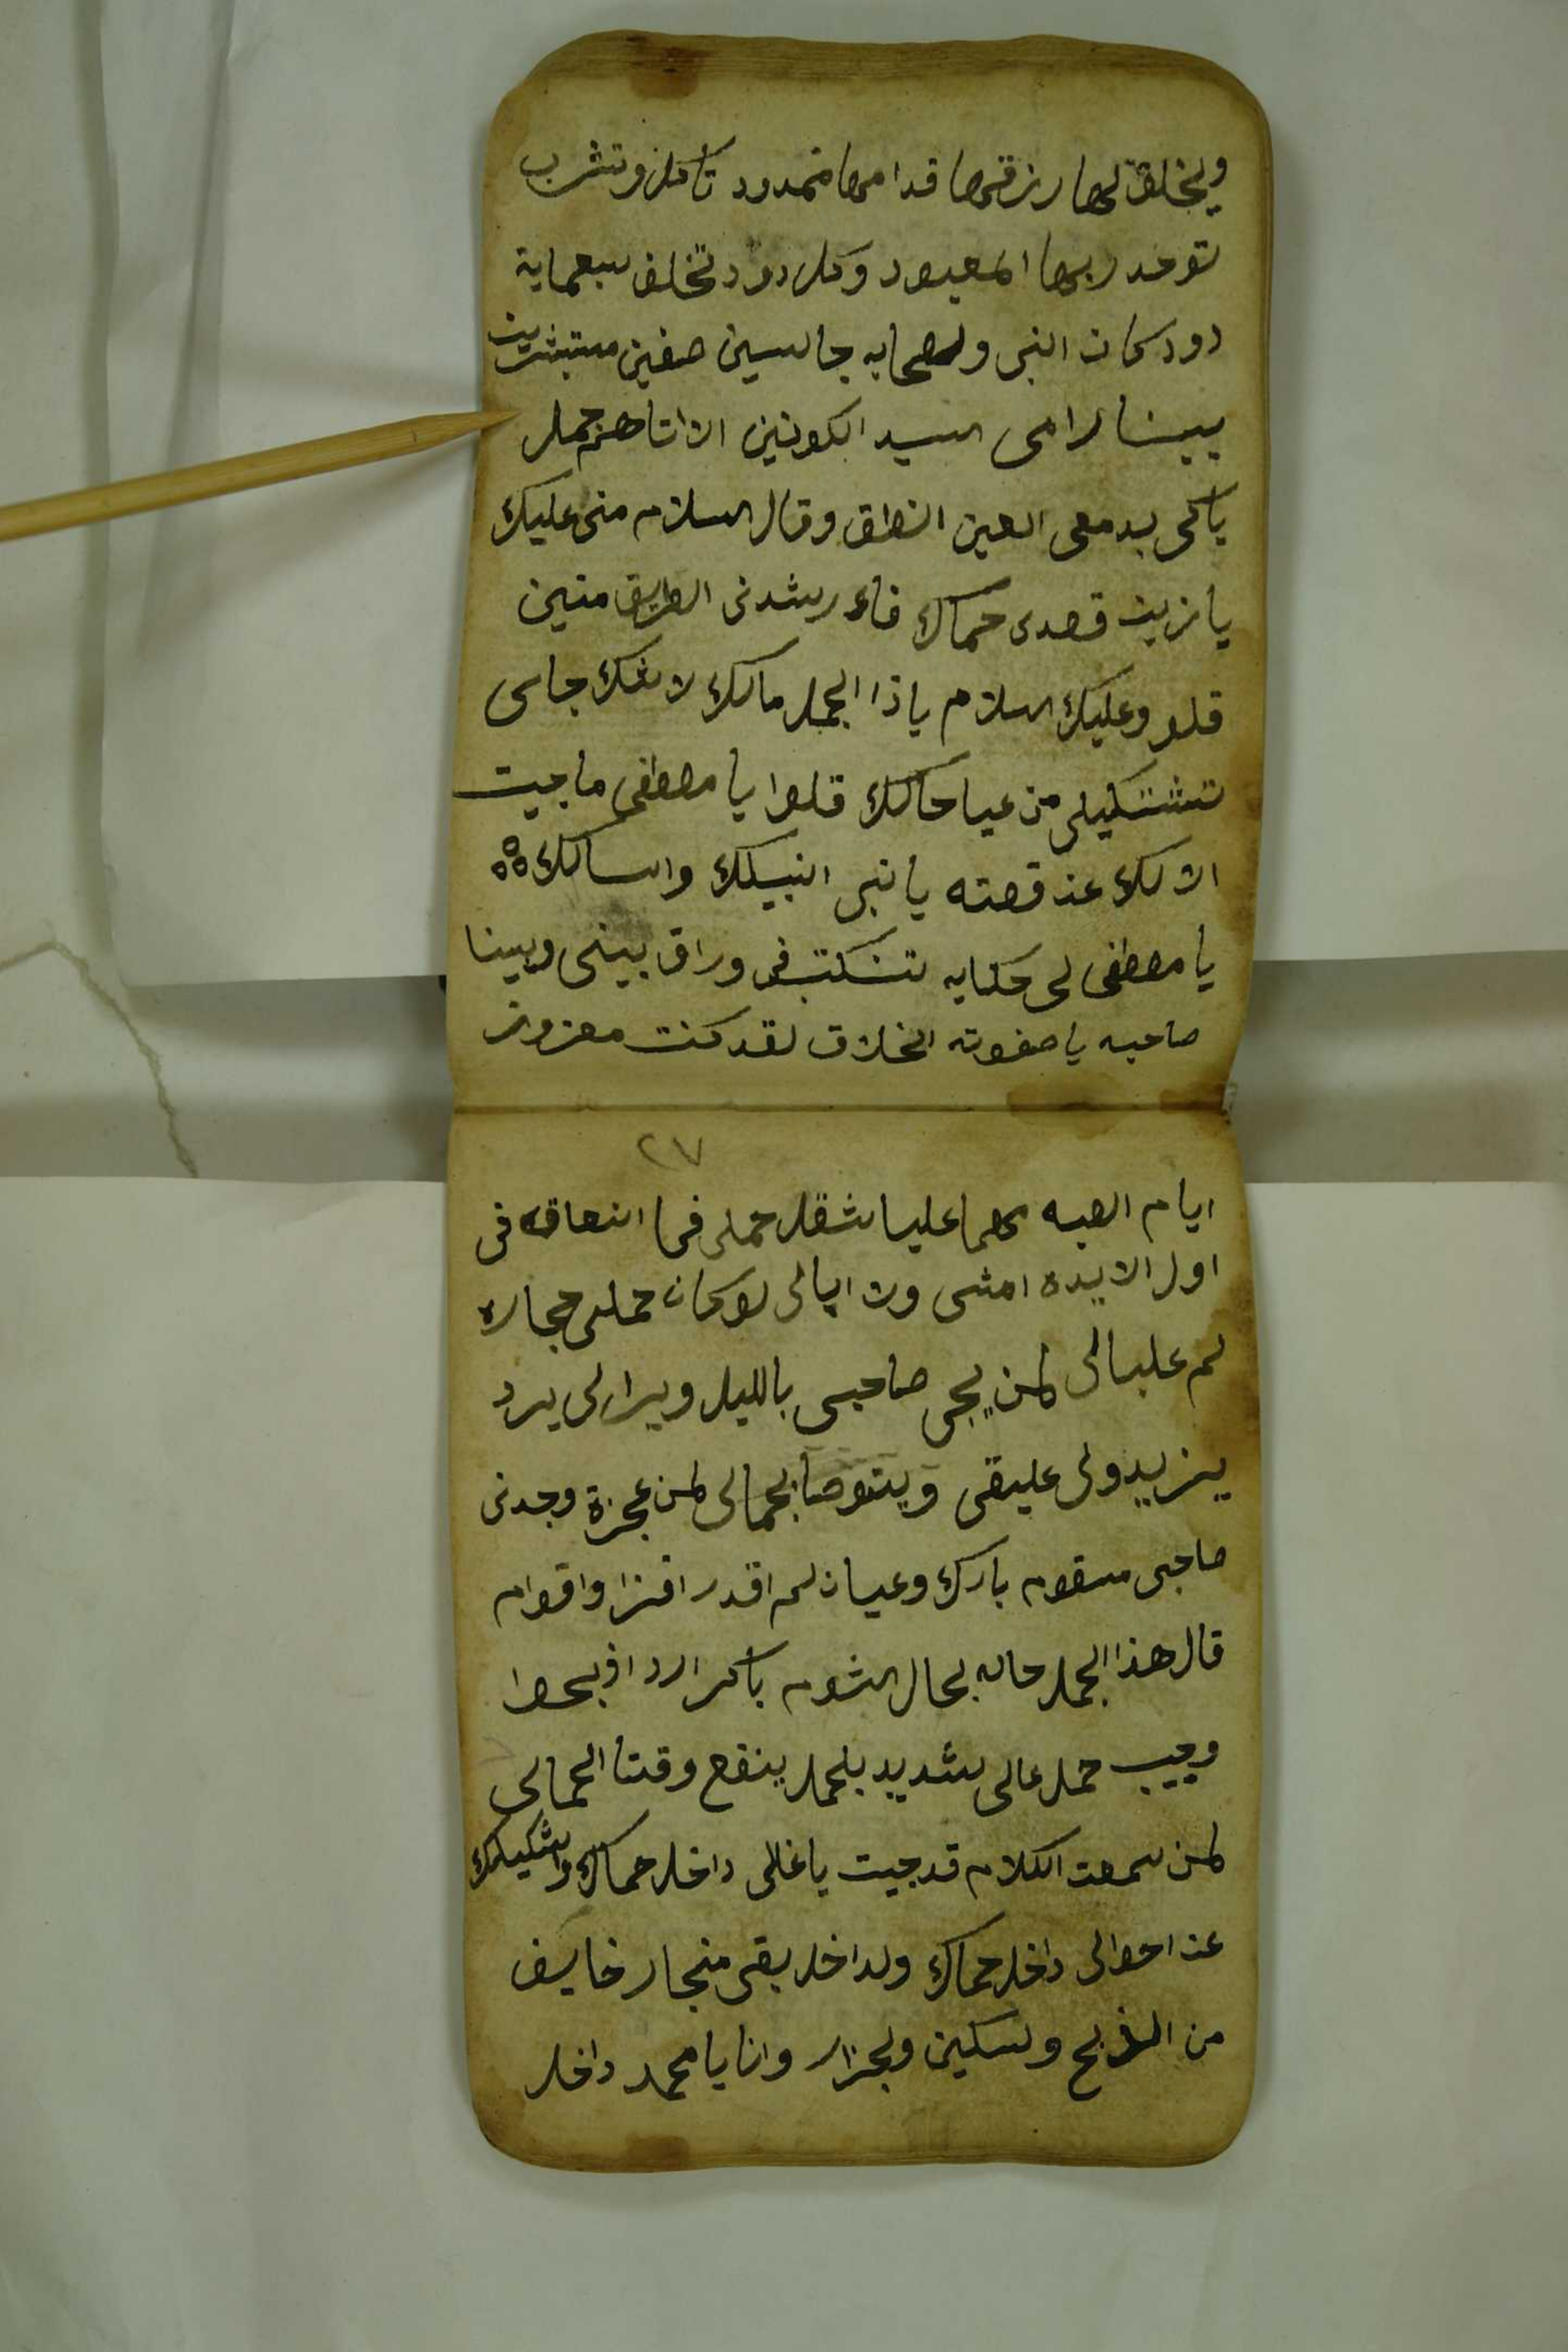 ويخلق لها رزقها قدامها ممدود تاكل وتشرب
توحد ربها المعبود وكل دود تخلف سبعماية
دود كان النبى ولصحابه جالسين صفين مستبشرين
بينا رامى السيد الكونين الا اتاهم جمل
باكى بدمعى العين انطق وقال السلام منى عليك
يا زين قصدى حماك فاء رشدنى الطريق منين
قلو وعليك السلام ياذا الجمل مالك لاشك جاى
تشتكيلى من عيا حالك قلوا يا مصطفى ما جيت
الا لك عند قصته يا نبى انبيلك واسالك
يا مصطفى لى حكايه تنكتب فى وراق بينى وبينا
صاحبه يا صفوته الخلاق لقد كنت معزوز
٢٧
ايام الصبه كلما عليا شقل حملى فما انعاقه فى
اول الابده امشى ولا ابالى لوكان حملى حجاره
لم علبالى لمن يجى صاحبى بالليل ويرالى يرد
يزيدولى عليقى ويتوصا بجمالى لمن عجزة وجدنى
صاحبى مسقوم بارك وعيان لم اقدر افزا واقوام
قال هذا الجمل حاله بحال الشوم باكر الرد اذبحوا
وجيب حمل عالى شديد بلحمل ينفع وقتنا الحمالى
لمن سمعت الكلام قد جيت ياغالى داخل حماك واشكيلك
عند احوالى داخل حماك ولداخل بقى منجار خايف
من الذبح ولسكين ولجزار وانا يا محمد داخل